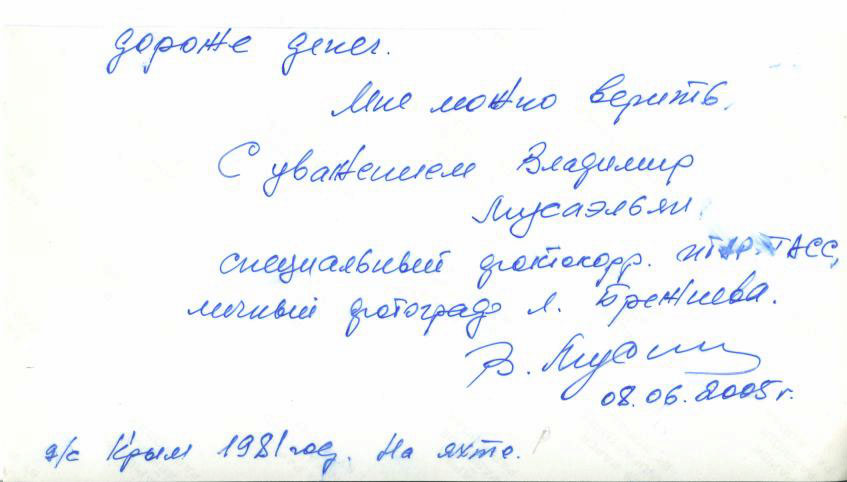 дороже денег.
Мне можно верить.
С уважением Владимир
Мусаэльян.
специальный фотокорр. ИТАР-ТАСС,
личный фотограф Л. Брежнева.
В. Мусаэльян
08.06.2005 г.
д/с Крым 1981 год. На яхте.